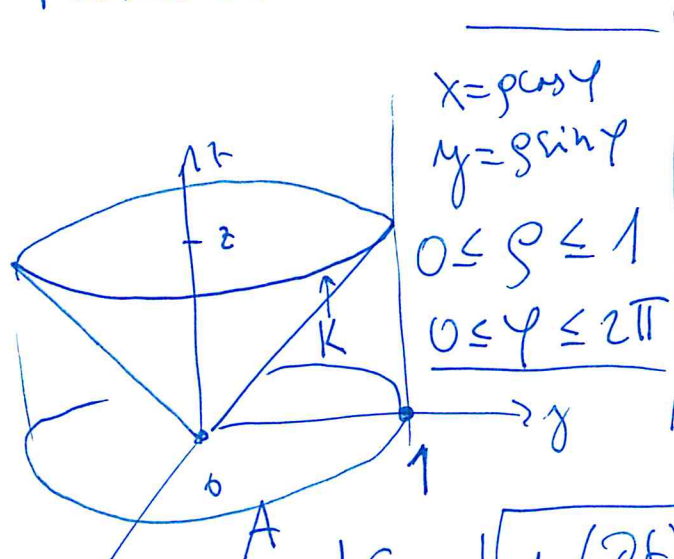 x=ρcosφ
y=ρsinφ
0≤ρ≤1
0≤φ≤2π
z
2
K
y
0
1
A